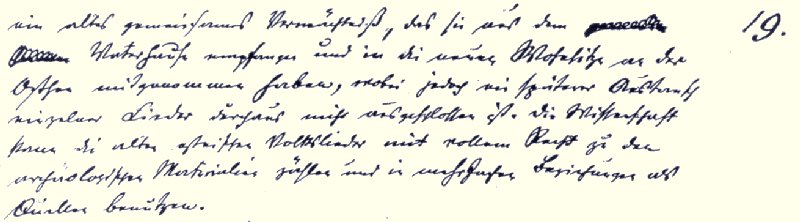 ein altes gemeinsames Vermächtniß, das sie aus dem 19.
Vaterhause empfangen und in die neuen Wohnsitze an der
Ostsee mitgenommen haben, wobei jedoch ein späterer Austausch
einzelner Lieder durchaus nicht ausgeschlossen ist. Die Wissenschaft
kann die alten estnischen Volkslieder mit vollem Recht zu den
archäologischen Materialien zählen und in mehrfachen Beziehungen als
Quellen benutzen.